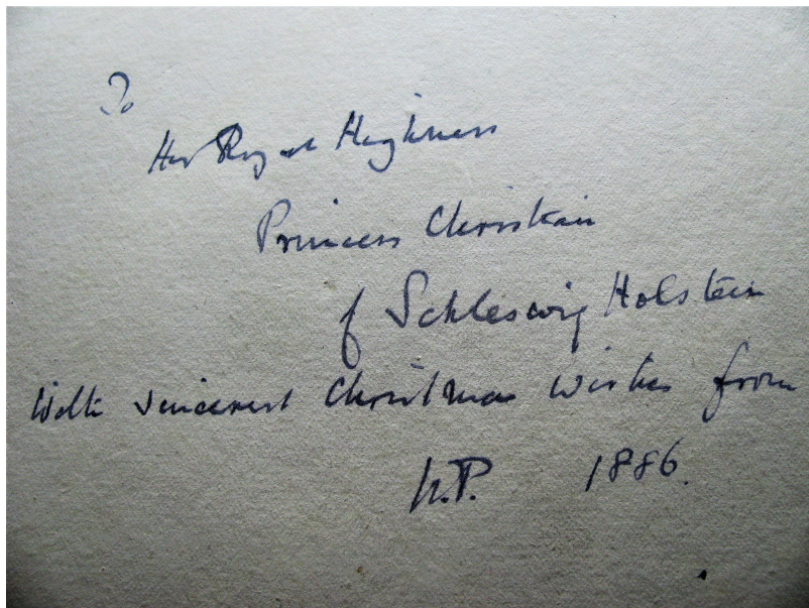 To
Her Royal Highness
Princess Christian
of Schleswig Holstein
With sincerest Christmas wishes from
1886.